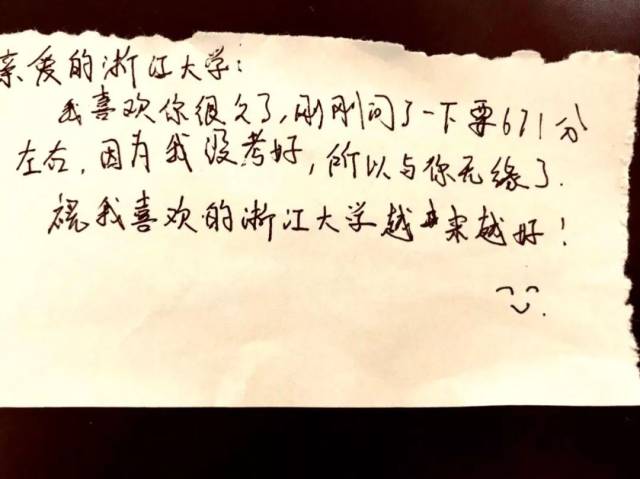 亲爱的浙江大学:
我喜欢你很久了,刚刚问了一下要671分
左右,因为我没考好,所以与你无缘了.
祝我喜欢的浙江大学越来越好!